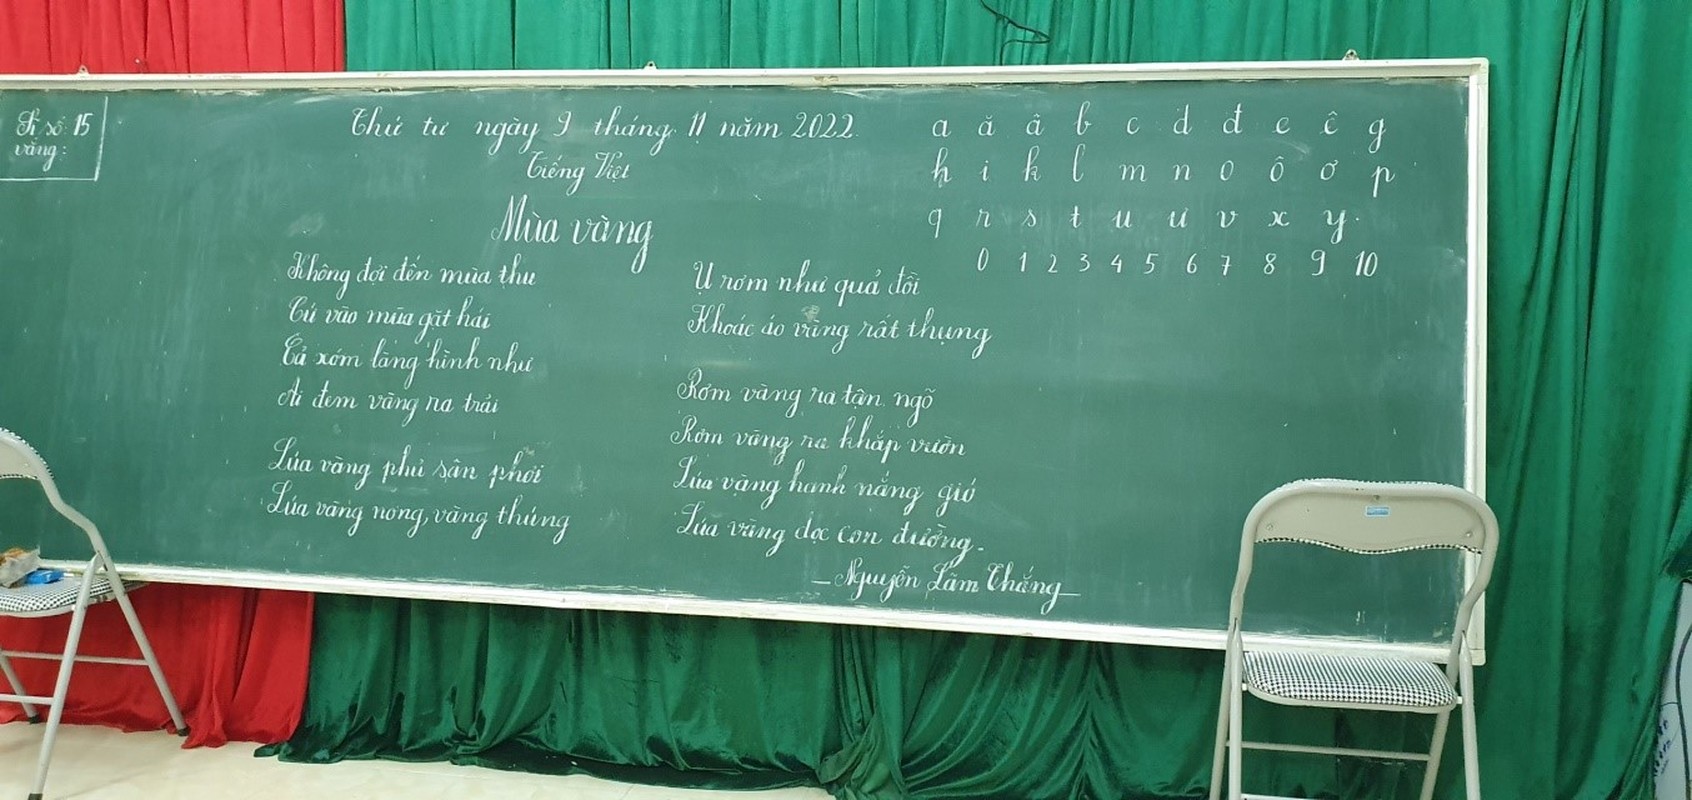 Sĩ số: 15
vắng:
Thứ tư ngày 9 tháng 11 năm 2022
Tiếng Việt
Mùa vàng
Không đợi đến mùa thu
Cứ vào mùa gặt hái
Cả xóm làng hình như
Ai đem vàng ra trải
Lúa vàng phủ sân phơi
Lúa vàng nong, vàng thúng
Ụ rơm như quả đồi
Khoác áo vàng rất thụng
Rơm vàng ra tận ngõ
Rơm vàng ra khắp vườn
Lúa vàng hanh nắng gió
Lúa vàng dọc con đường.
- Nguyễn Lãm Thắng -
a ă â b c d đ e ê g
h i k l m n o ô ơ p
q r s t u ư v x y.
0 1 2 3 4 5 6 7 8 9 10